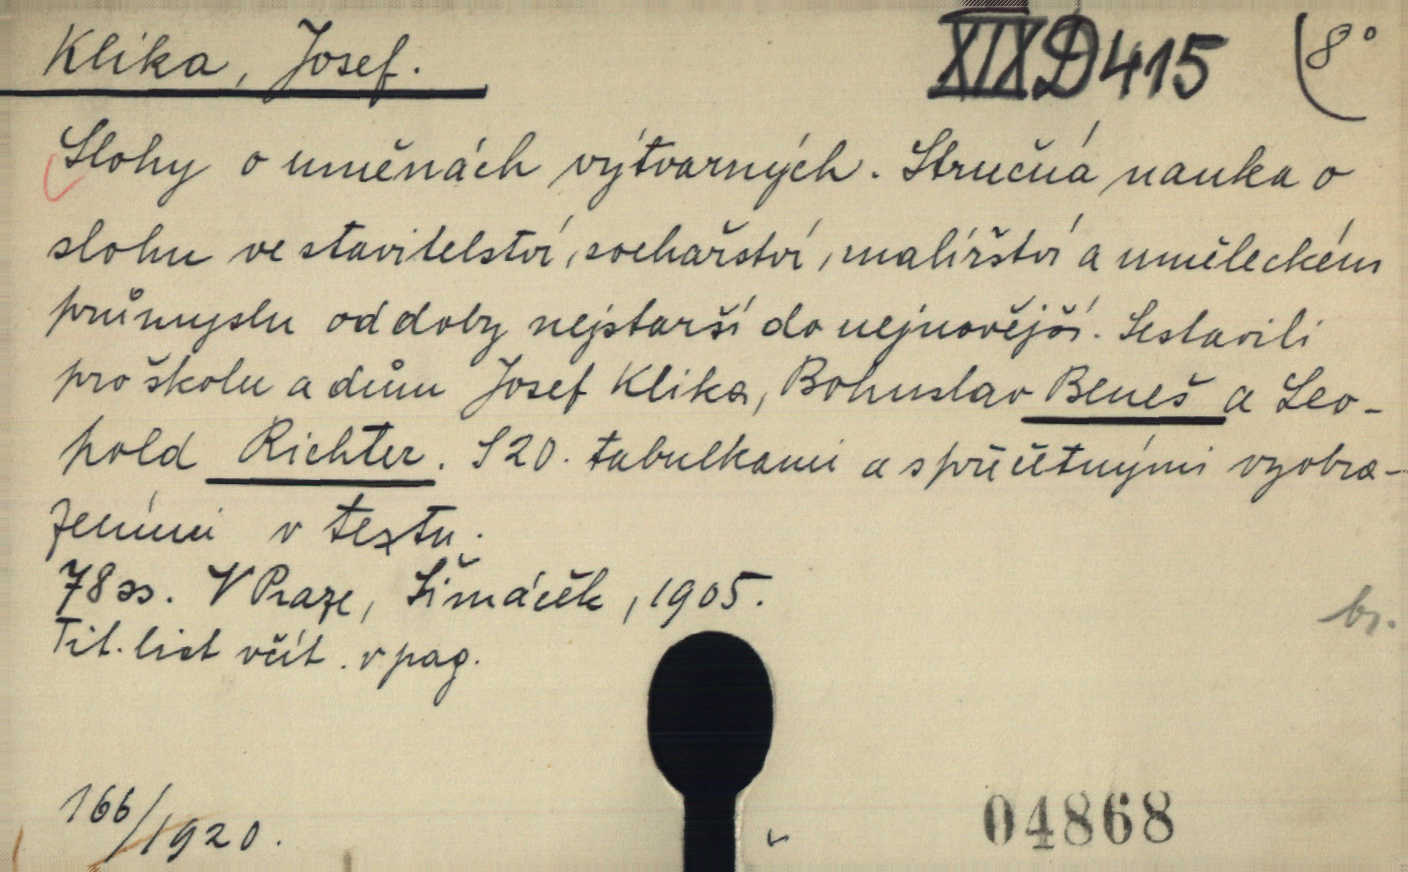 Klika, Josef.
XIXD415
8°
Slohy o uměnách výtvarných. Stručná nauka o
slohu ve stavitelství, sochařství, malířství a uměleckém
průmyslu od doby nejstarší do nejnovější. Sestavili
pro školu a dům Josef Klika, Bohuslav Beneš a Leo-
pold Richter. S 20. tabulkami a s příčetnými vyobra-
zeními v textu.
78 ss. V Praze, Šimáček, 1905.
Tit. list včít. v pag.
br.
166/1920.
04868